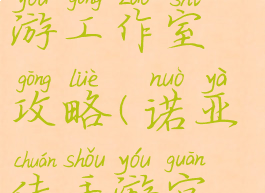 yóu gōng zuò shì
游工作室
gōng lüè nuò yà
攻略(诺亚
chuán shǒu yóu guān
传手游官